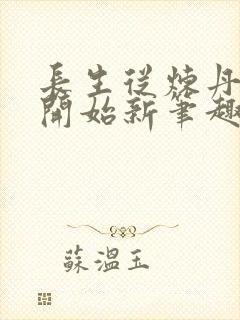 長生從煉丹
開始新筆趣
蘇溫玉